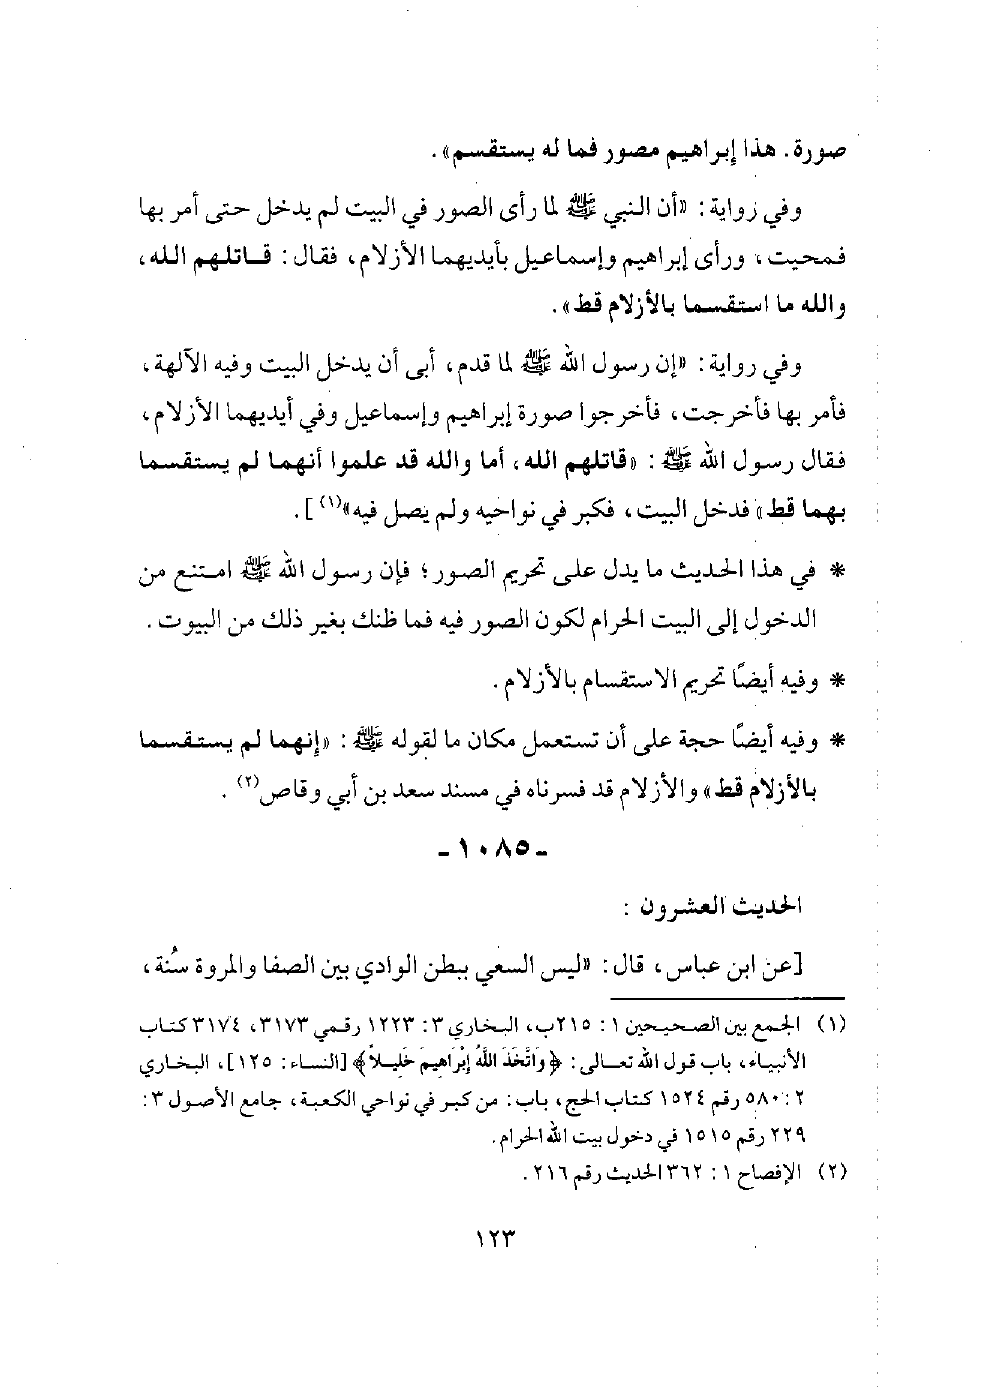 صورة. هذا إبراهيم مصور فما له يستقسم».
وفي رواية: «أن النبي ﷺ لما رأى الصور في البيت لم يدخل حتى أمر بها
فمحيت، ورأى إبراهيم وإسماعيل بأيديهما الأزلام، فقال: قاتلهم الله،
والله ما استقسما بالأزلام قط».
وفي رواية: «إن رسول الله ﷺ لما قدم، أبى أن يدخل البيت وفيه الآلهة،
فأمر بها فأخرجت، فأخرجوا صورة إبراهيم وإسماعيل وفي أيديهما الأزلام،
فقال رسول الله ﷺ: «قاتلهم الله، أما والله قد علموا أنهما لم يستقسما
بهما قط» فدخل البيت، فكبر في نواحيه ولم يصل فيه»(١)].
* في هذا الحديث ما يدل على تحريم الصور؛ فإن رسول الله ﷺ امتنع من
الدخول إلى البيت الحرام لكون الصور فيه فما ظنك بغير ذلك من البيوت.
* وفيه أيضًا تحريم الاستقسام بالأزلام.
* وفيه أيضًا حجة على أن تستعمل مكان ما لقوله ﷺ: «إنهما لم يستقسما
بالأزلام قط» والأزلام قد فسرناه في مسند سعد بن أبي وقاص(٢).
-١٠٨٥-
الحديث العشرون:
[عن ابن عباس، قال: «ليس السعي ببطن الوادي بين الصفا والمروة سُنة،
(١) الجمع بين الصحيحين ١: ٢١٥ب، البخاري ٣: ١٢٢٣ رقمي ٣١٧٣، ٣١٧٤ كتاب
الأنبياء، باب قول الله تعالى: ﴿وَاتَّخَذَ اللَّهُ إِبْرَاهِيمَ خَلِيلاً﴾ [النساء: ١٢٥]، البخاري
٢: ٥٨٠ رقم ١٥٢٤ كتاب الحج، باب: من كبر في نواحي الكعبة، جامع الأصول ٣:
٢٢٩ رقم ١٥١٥ في دخول بيت الله الحرام.
(٢) الإفصاح ١: ٣٦٢ الحديث رقم ٢١٦.
١٢٣